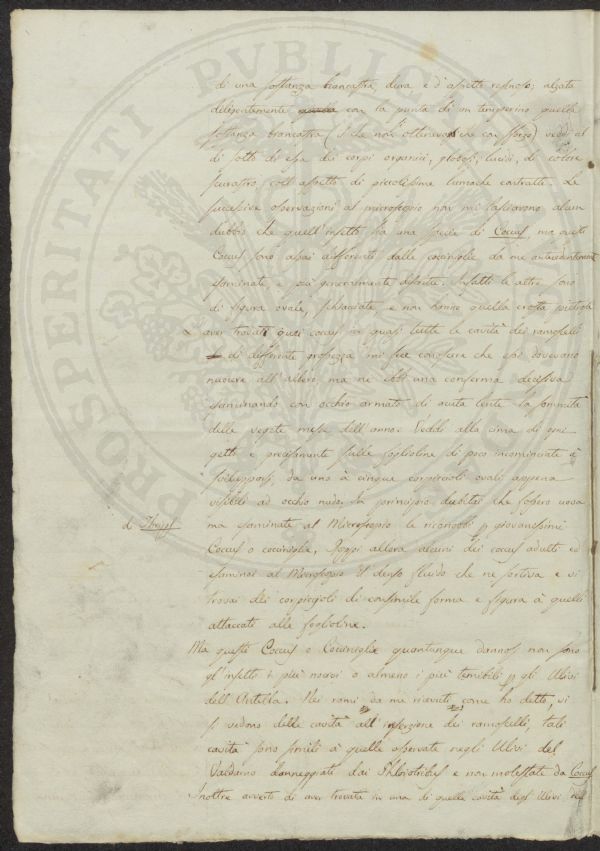 di una sostanza biancastra, dura, e d'aspetto resinoso; alzata
diligentemente con la punta di un temperino quella
sostanza biancastra (il che non otteneva se non con forza) veddi al
di sotto di essa dei corpi organici, globosi, lucidi, di colore
scurastro coll'aspetto di piccolissime lumache contratte. Le
successive osservazioni al microscopio non mi lasciarono alcun
dubbio che quell'insetto sia una specie di Coccus ma questi
Coccus sono assai differenti dalle cocciniglie da me antecedentemente
esaminate, e più generalmente descritte. Infatti le altre sono
di figura ovale, schiacciate, e non hanno quella crosta
aver trovati quei coccus in quasi tutte le cavità dei ramoscelli
di differente grossezza mi fece conoscere che essi dovevano
nuocere all'albero, ma ne ebbi una conferma decisiva
esaminando con occhio armato di acuta lente la sommità
delle vegete messe dell'anno. Veddi alla cima di quei
getti e precisamente sulle foglioline di poco incominciate à
svilupparsi, da uno à cinque corpiccioli ovali appena
visibili ad occhio nudo. In principio dubitai che fossero uova
ma esaminate al Microscopio le riconobbi p giovanissimi
Coccus o cocciniglie. Roppi allora alcuni dei coccus adulti ed
esaminai al Microscopio il denso fluido che ne sortiva e vi
trovai dei corpiccioli di consimile forma e figura à quelli
attaccati alle foglioline.
Ma questi Coccus o Cocciniglie quantunque dannosi non sono
gl'insetti i più nocivi o almeno i più temibili p gli Ulivi
dell'Antella. Nei rami da me ricevuti come ho detto, vi
si vedono delle cavità all'inserzione dei ramoscelli, tali
cavità sono simili à quelle osservate negli Ulivi del
Valdarno danneggiate dai Phloiotribus e non molestate da Coccus
Inoltre avverto di aver trovata in una di quelle cavità degli Ulivi dell
PROSPERITATI PVBLICAE